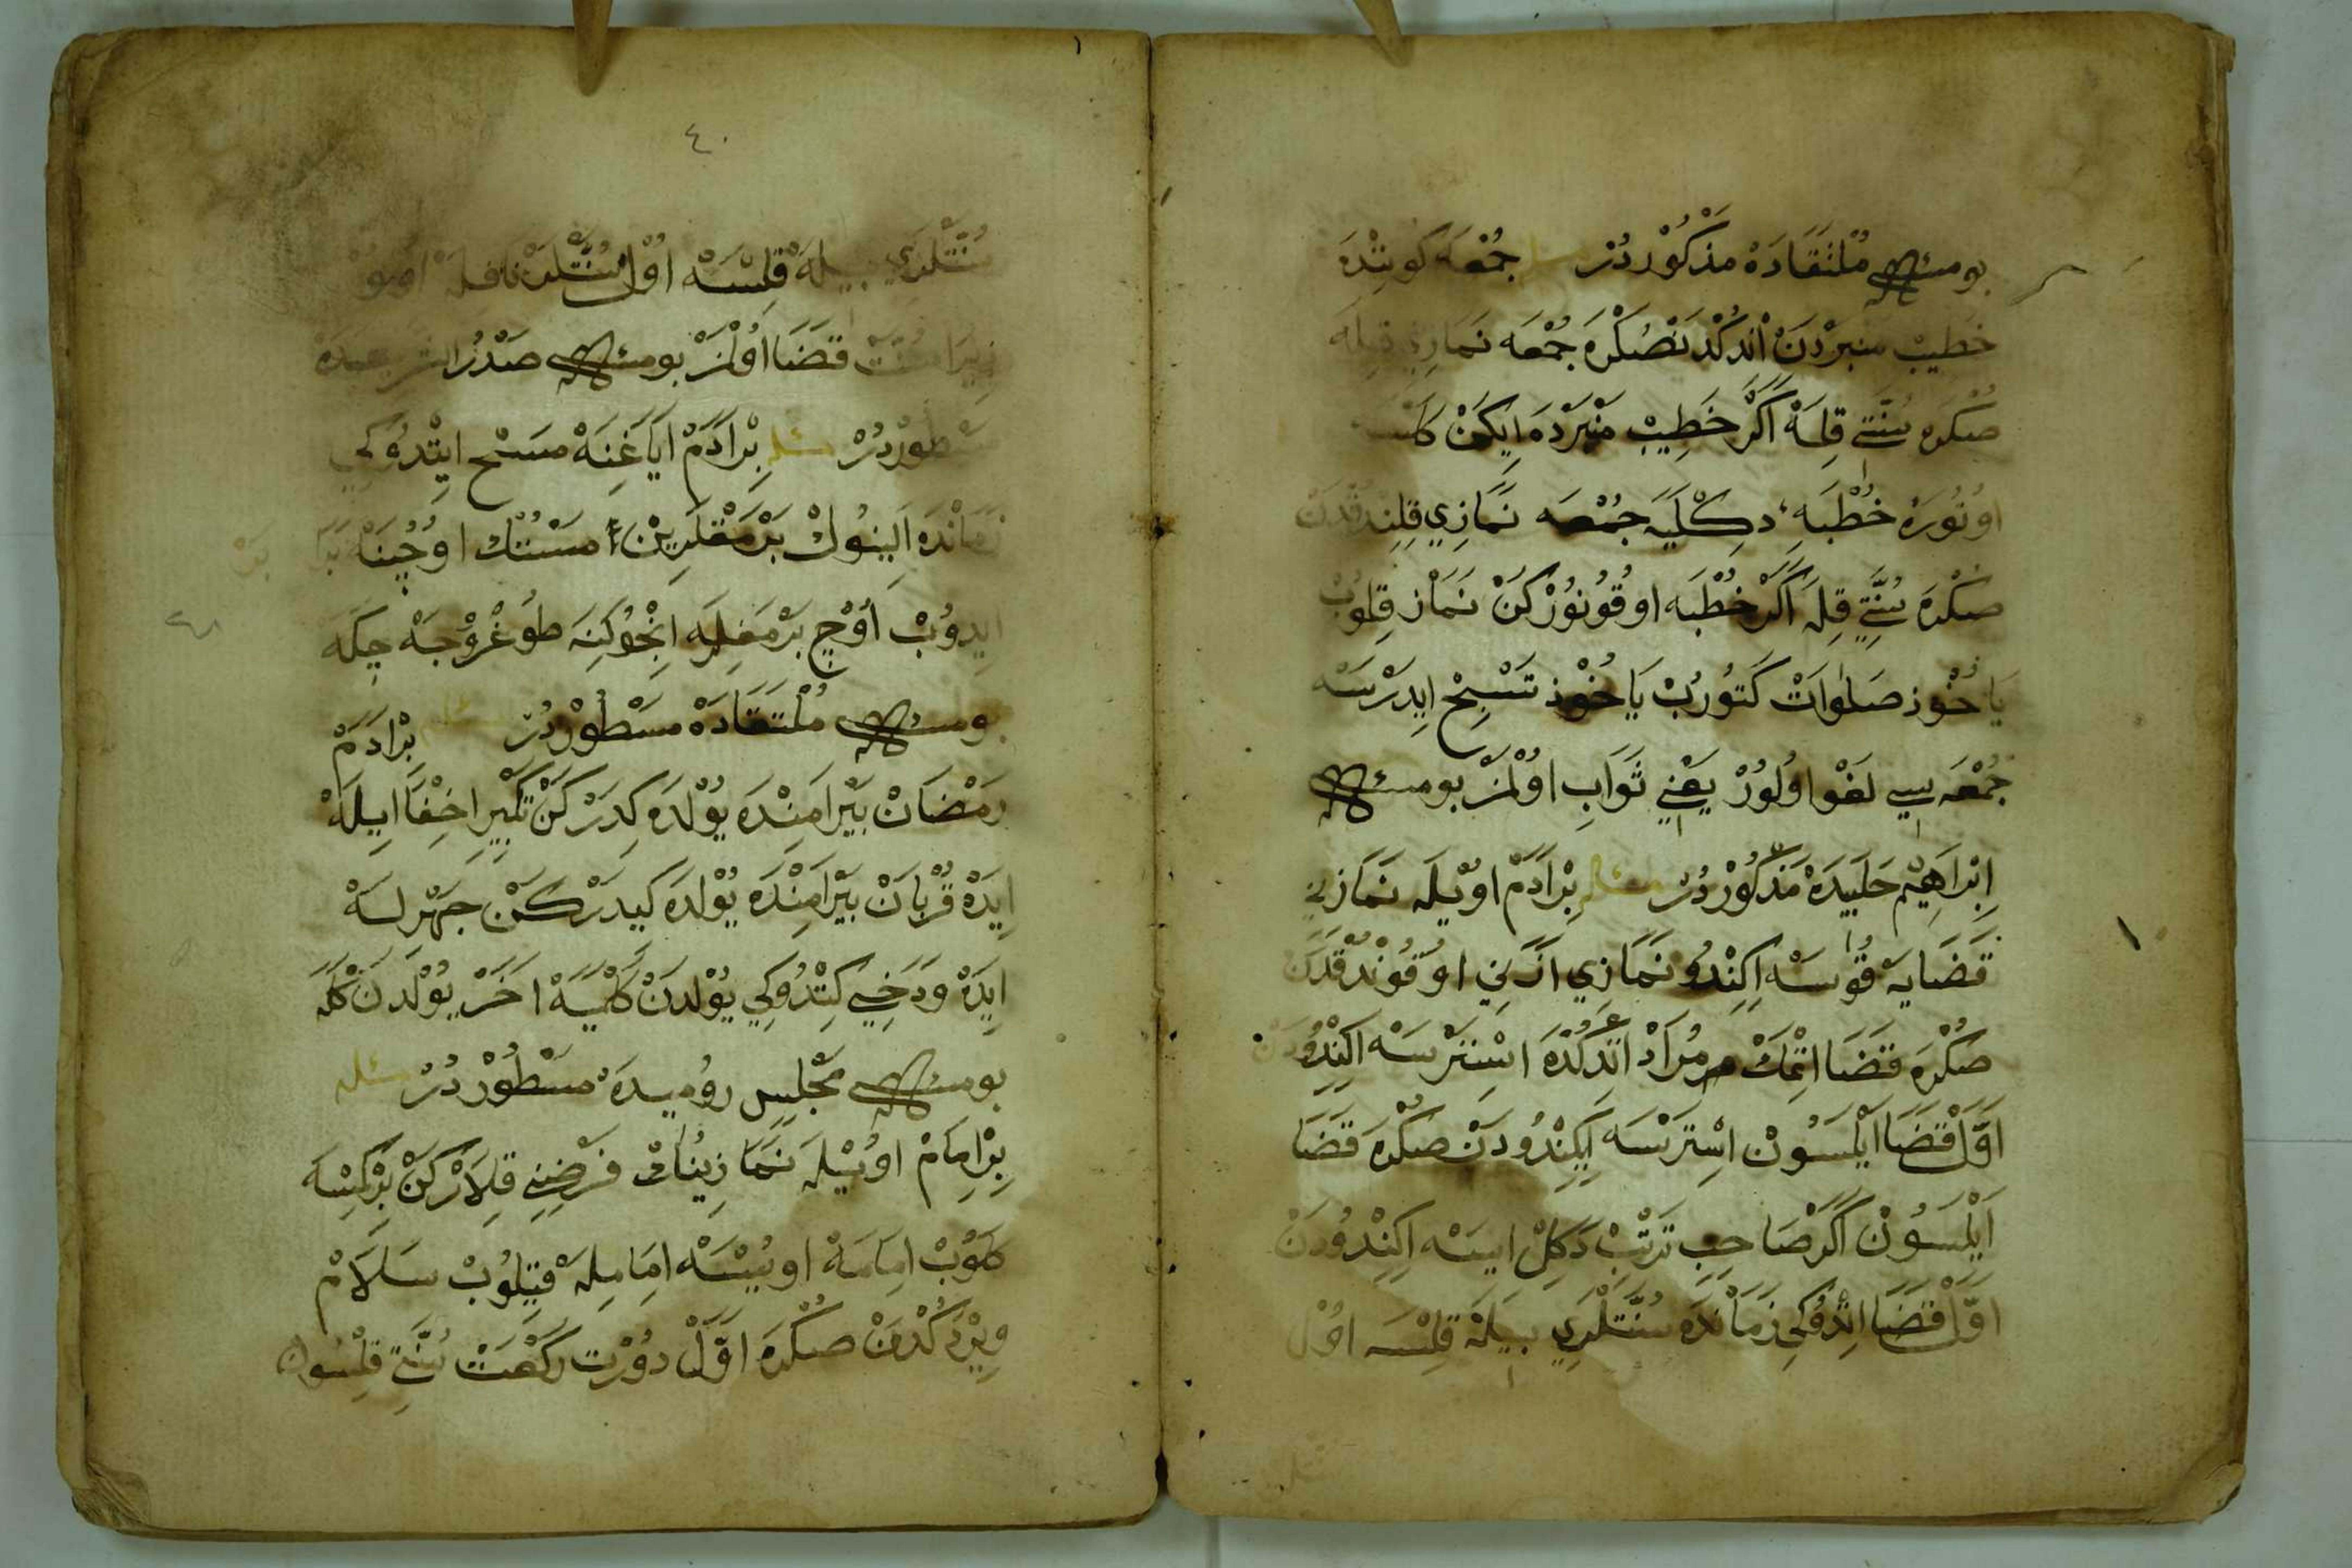 بو مسئله مُلْتَقَادَهْ مَذْكُوْردُرْ مسئله جُمْعَه كُونِنْدَهْ
خَطِيبْ مِنْبَرْدَنْ اَنْدُكْدَنْصُكْرَه جُمْعَه نَمَازِنِي قِيلَه
صُكْرَه سُنَّتِي قِلَهْ اَكَرْ خَطِيبْ مِنْبَرْدَه اِيكَنْ كَلْسَه
اوُتُورَهْ خُطْبَهِ دِكْلَيَه جُمْعَه نَمَازِي قِلِنْدُقْدَنْ
صُكْرَه سُنَّتِي قِلَه اَكَرْ خُطْبَه اوقُونُوْرْكَنْ نَمَازْ قِلُوبْ
يَا خُوْذ صَلَوَاتْ كَتُورُبْ يَا خُوْذ تَسْبِيحْ اِيدَرْسَه
جُمْعَه سِي لَغْو اوُلُورْ يَعْنِي ثَوَابِ اوُلْمَزْ بو مسئله
اِبْرَاهِيْم حَلَبِيدَهْ مَذْكُوْرْدُرْ مسئله بِرْاَدَمْ اوُيْلَه نَمَازِنِي
قَضَايَه قُوْسَه اِكِنْدُو نَمَازِي اَذَانِي اوُقُونْدُقْدَنْ
صُكْرَه قَضَا اِتْمَكْ مُرَادْ اِتْدُكْدَه اِسْتَرْسَه اِكِنْدُودَنْ
اَوَّلْ قَضَا اَيْلَسُونْ اِسْتَرْسَه اِيكِنْدُودَنْ صُكْرَه قَضَا
اَيْلَسُونْ اَكَرْ صَاحِبِ تَرْتِبْ دَكِلْ اِيسَه اِكِنْدُودَنْ
اَوَّلْ قَضَا اِتْدُوكِي زَمَانْدَه سُنَّتْلَرِي بِيلَهْ قِلْسَه اوُلْ
٤٠
سُنَّتْلَرِي بِيلَهْ قِلْسَهْ اوُلْ سُنَّتْلَرْ نَافِلَهْ اوُلُوْرْ
زِيرَا سُنَّتْ قَضَا اوُلْمَزْ بو مسئله صَدْرُ الشَّرِيعَدَهْ
مَسْطُوْرْدُرْ مسئله بِرْاَدَمْ اَيَاغِنَهْ مَسْح اِيتْدُوكِي
زَمَانْدَه اَلِينُوكْ بَرْمَقْلَرِينْ مَسْتُنْكْ اوُجُنَه
اِيدُوبْ اوُچ بَرْمَغِلَه اِنْجُوكِنَه طُوغْرُوجَه چِكَه
بو مسئله مُلْتَقَادَهْ مَسْطُوْرْدُرْ مسئله بِرْاَدَمْ
رَمَضَانْ بَيْرَامِنْدَه يُوْلْدَه كِدَرْكَنْ تَكْبِيرِ اِخْفَا اِيلَهْ
اِيدَهْ قُرْبَانْ بَيْرَامِنْدَه يُوْلْدَه كِيدَرْكَنْ جَهْرِلَهْ
اِيدَهْ وَدَخِي كِتْدُوكِي يُوْلْدَنْ كَلْمِيَهْ اَخَرْ يُوْلْدَنْ كَلَه
بو مسئله مَجْلِسِ رُومِيدَهْ مَسْطُوْرْدُرْ مسئله
بِرْاِمَامْ اوُيْلَه نَمَازِينُكْ فَرْضِنِي قِلَارْكَنْ بِرْكِسَه
كَلُوْبْ اِمَامَهْ اويُيْسَه اِمَامِلَه قِيلُوبْ سَلَامْ
وِيرْدُكْدَنْ صُكْرَه اَوَّلْ دُوْرْت رَكْعَتْ سُنَّتِي قِلْسُونْ